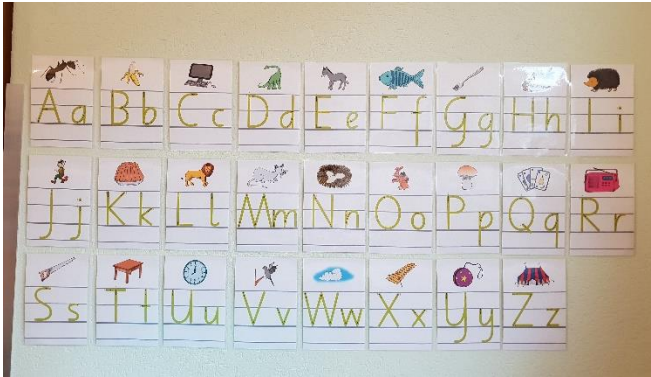 Aa Bb Cc Dd Ee Ff Gg Hh Ii
Jj Kk Ll Mm Nn Oo Pp Qq Rr
Ss Tt Uu Vv Ww Xx Yy Zz